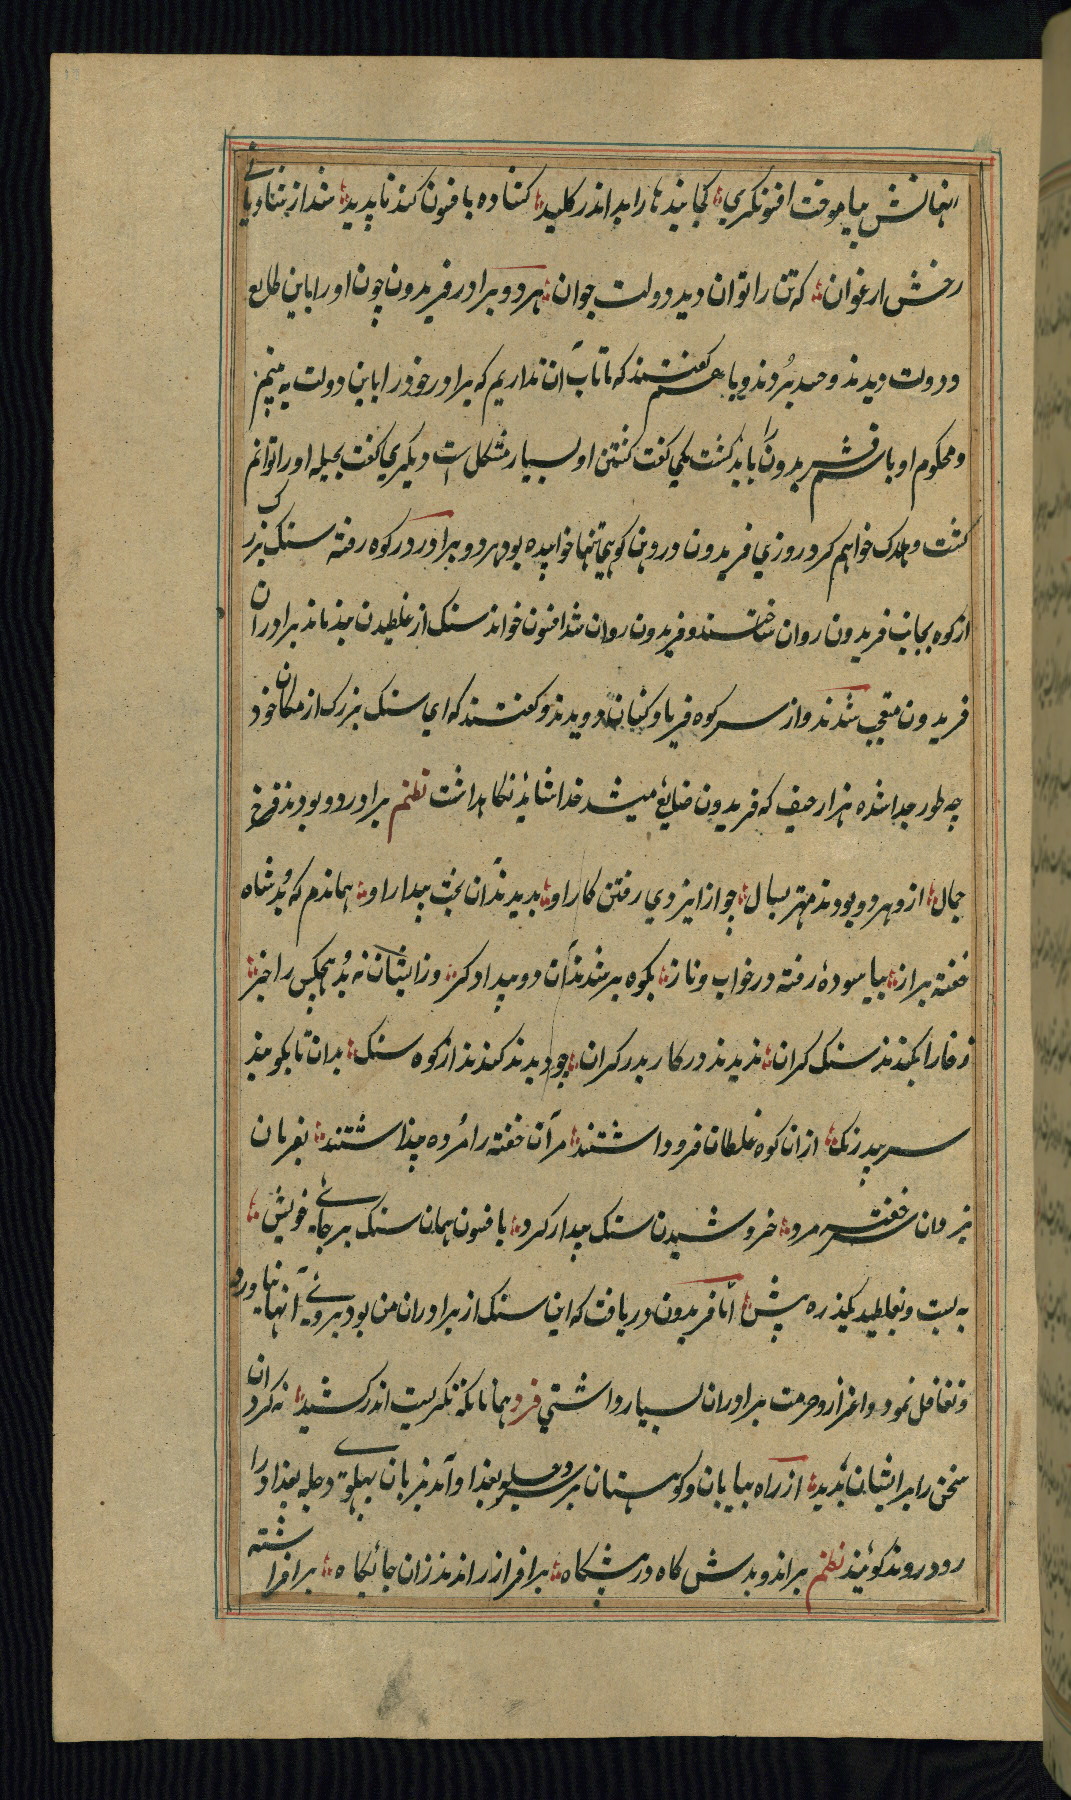 نهانش بیاموخت افسونگری ؛ کجا بندها را بد اندر کلید ؛ کشاده بافسون کند ناپدید ؛ شد از شادمانی
رخش ارغوان ؛ که تن را توان دید دولت جوان ؛ هر دو برادر فریدون چون او را باین طالع
و دولت دیدند و حسد بردند و باهم گفتند که ما تاب آن نداریم که برادر خود را باین دولت به بینم
و محکوم او باشم فریدون را باید کشت یکی گفت کشتن او بسیار مشکل است دیگری گفت بحیله او را توانم
کشت و هلاک خواهم کرد روزی فریدون در وهن کوهی تنها خوابیده بود هر دو برادر در کوه رفته سنگ بزرک
از کوه بجانب فریدون روان ساختند و فریدون روان شد افسون خواند سنک از غلطیدن بند ماند برادران
فریدون متعجب شدند و از سر کوه فریاد کنان دویدند و گفتند که ای سنک بزرک از مکان خود
چه طور جدا شده هزار حیف که فریدون ضایع میشد خدا شاید نکاهداشت نظم برادر دو بودند فرخ
جمال ؛ ازو هر دو بودند مهتر بسال ؛ چو از ایزدی رفتن کار او ؛ بدیدند آن بخت بیدار او ؛ هماندم که بد شاه
خفته براز ؛ بیاسوده رفته در خواب و ناز ؛ بکوه بر شدند آن دو بیدادکر ؛ وز ایشان نه بد هیچکس را خبر ؛
ز خارا بکندند سنک کران ؛ ندیدند در کار بد کران ؛ چو دیدند کندند از کوه سنک ؛ بدان تا بکوبند
سر بیدرنک ؛ ازان کوه غلطان فرو داشتند ؛ مر آن خفته را مرده پنداشتند ؛ بفرمان
یزدان سر خفته مرد ؛ خروشیدن سنک بیدار کرد ؛ بافسون همان سنک بر جای خویش ؛
به بست و نغلطید یکذره پیش ؛ اما فریدون دریافت که این سنک از برادران من بود بروی آنها نیاورد
و تغافل نمود و اعزاز و حرمت برادران بسیار داشتی فرد همانا که نکریست اندر کشید ؛ نه کرد آن
سخن را بر ایشان پدید ؛ از راه بیابان و کوهستان بر دجله بغداد آمد بزبان پهلوی دجله بغداد را
رود اروند گویند نظم براند و بدش کاوه در پیشکاه ؛ برافراز راندند زان جایکاه ؛ برافراشته